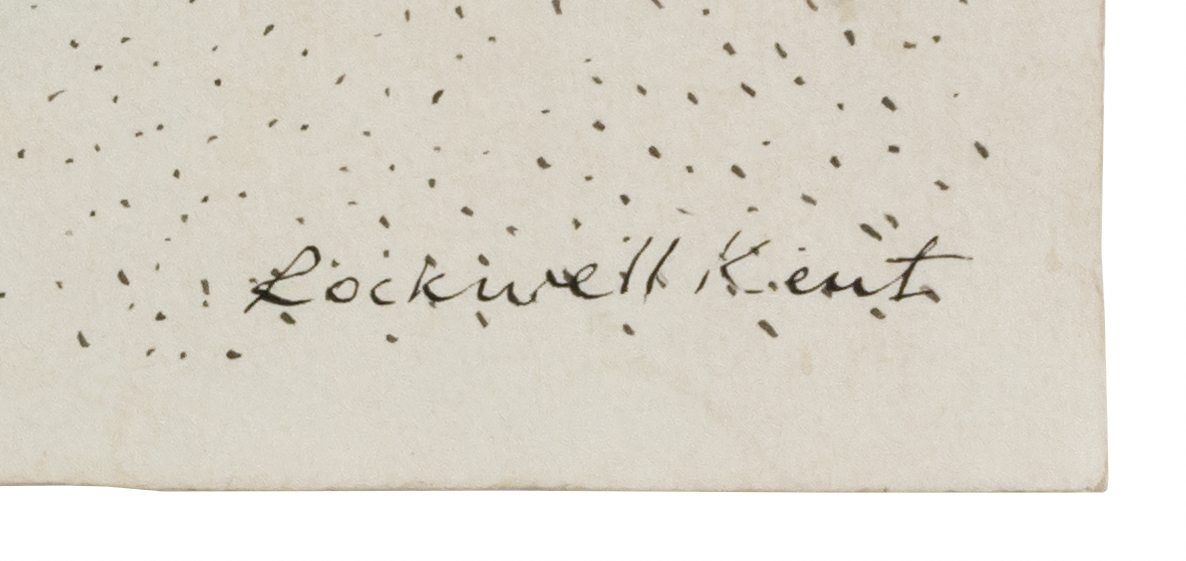 Rockwell Kent